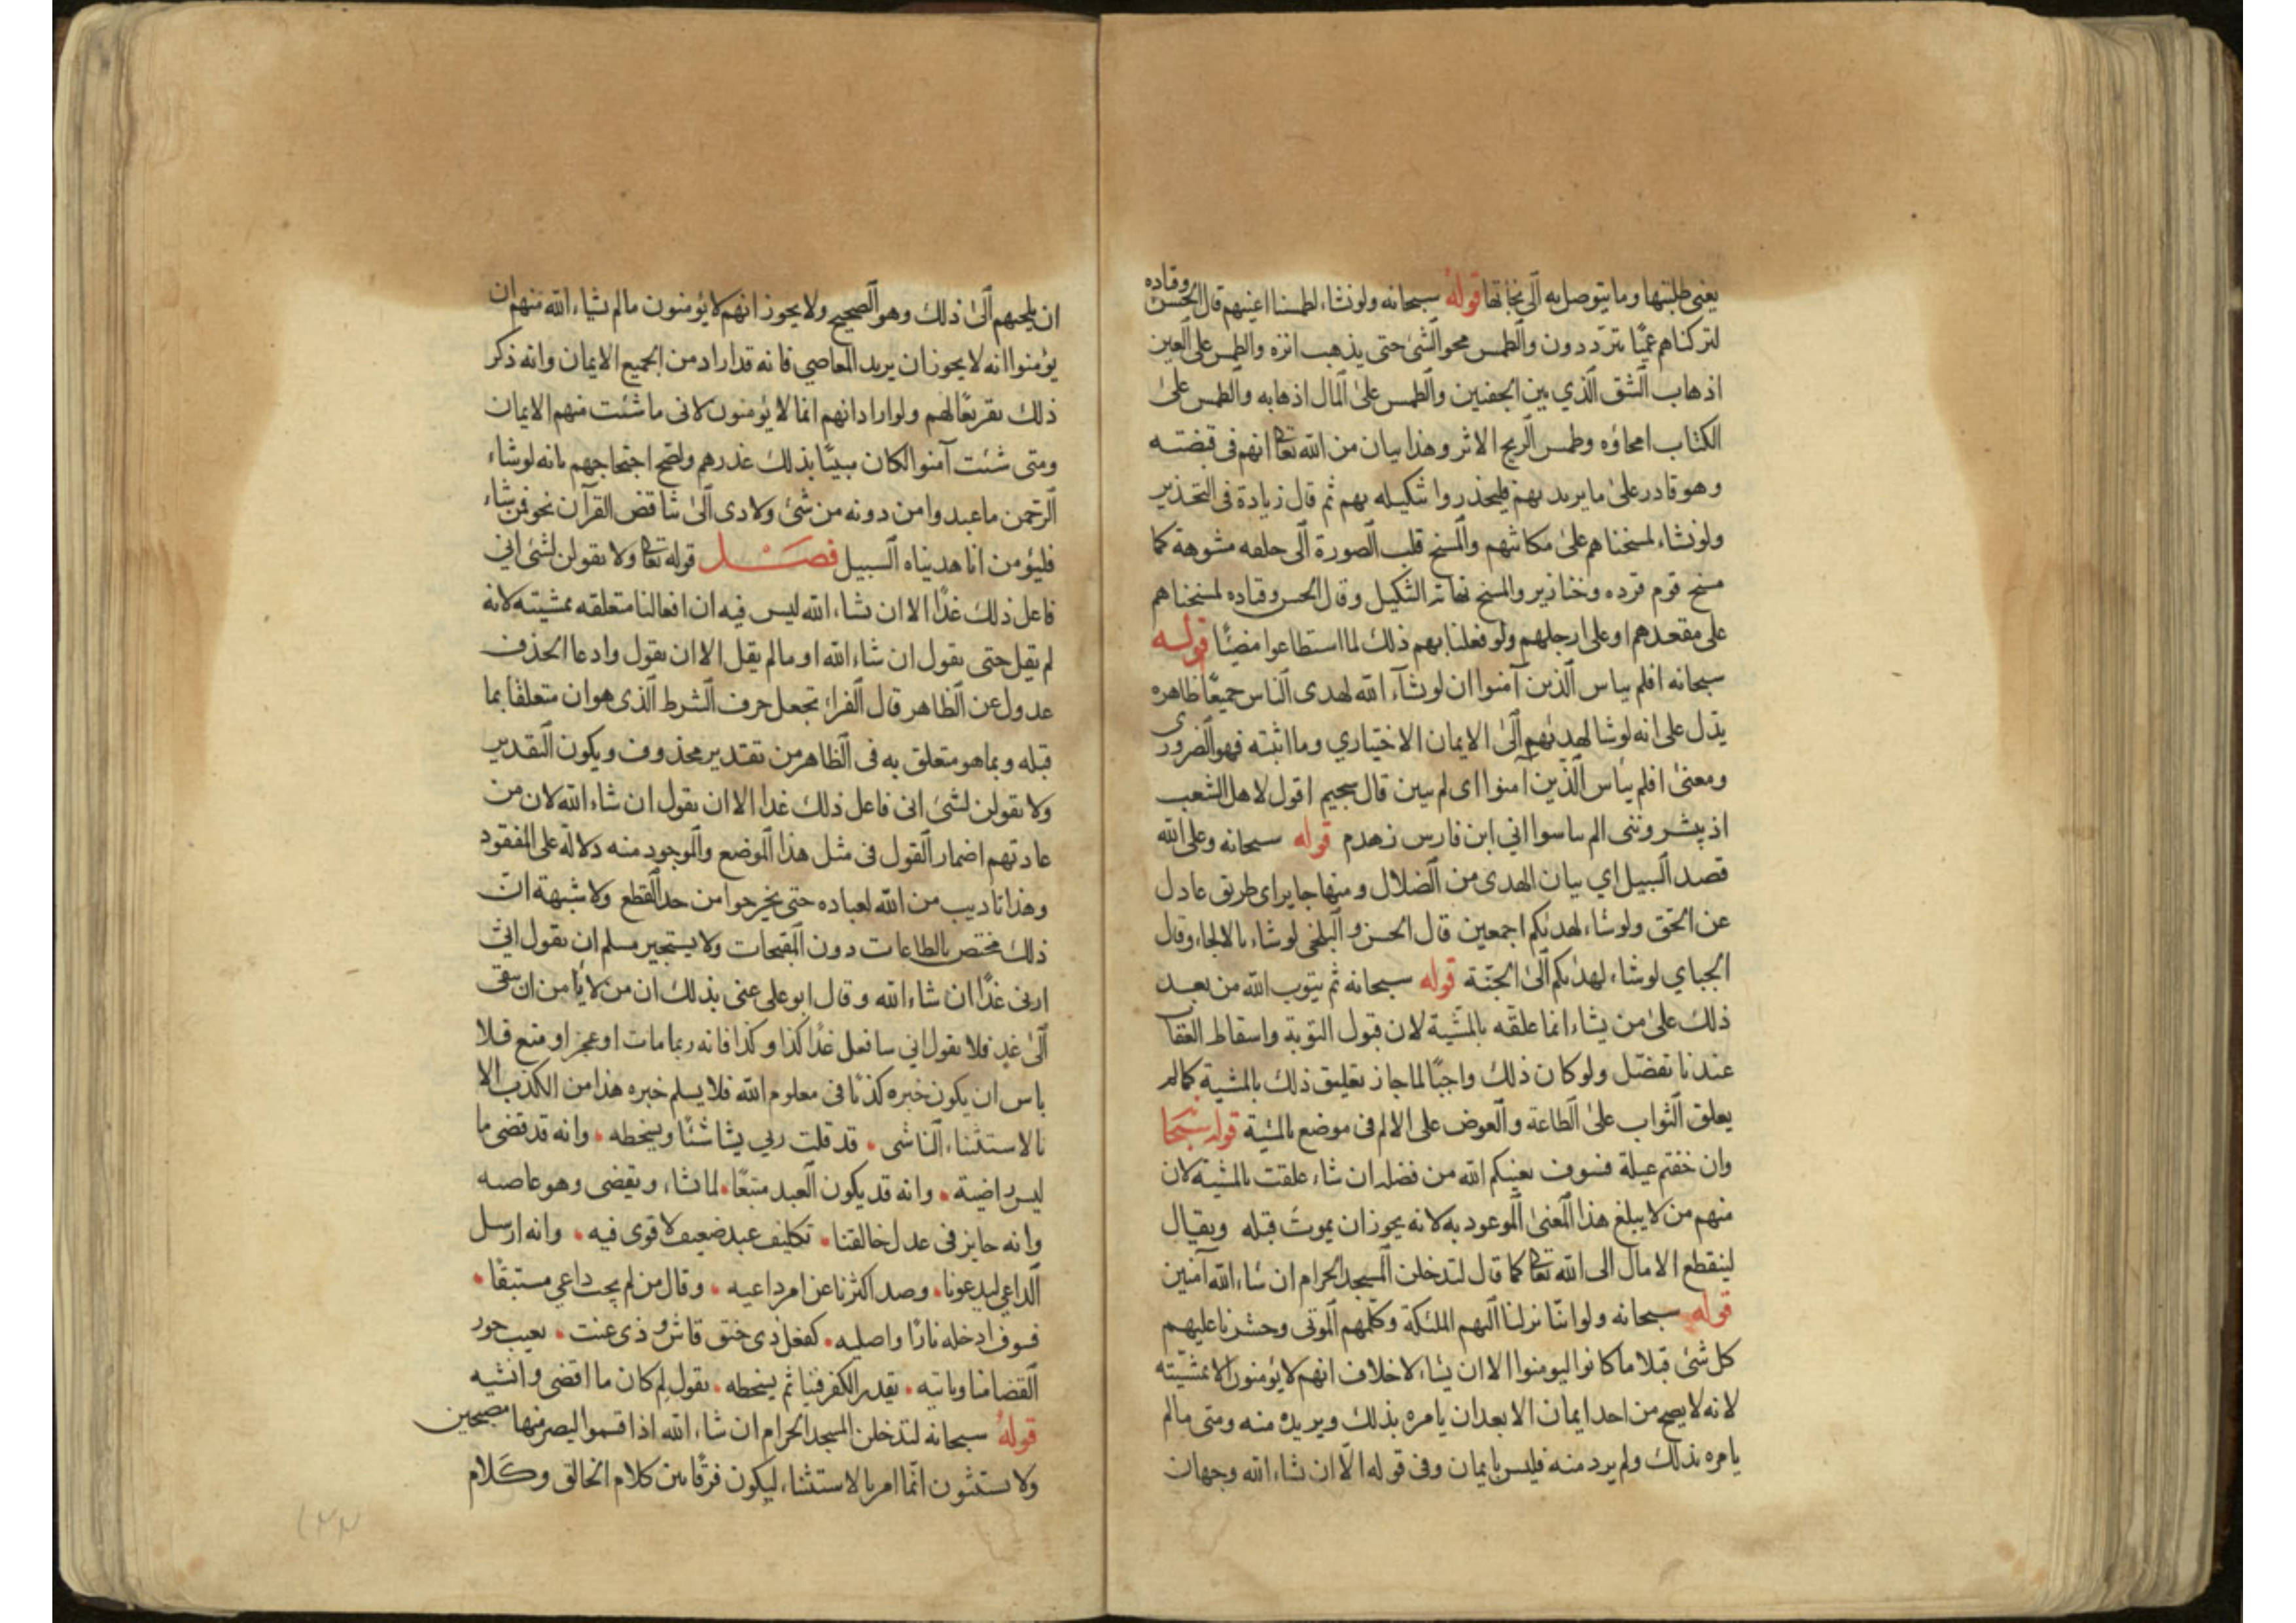 يعنى طلبتها وما يتوصل به الى نجاتها قوله سبحانه ولو نشاء لطمسنا اعينهم قال الحسن وقتاده
لتركناهم عميًا يتردّدون والطمس محو الشئ حتى يذهب اثره والطمس على العين
اذهاب الشق الذي بين الجفنين والطمس على المال اذهابه والطمس على
الكتاب امحاؤه وطمس الريح الاثر وهذا بيان من الله تعا انهم فى قبضته
وهو قادر على ما يريد بهم فليحذروا تنكيله بهم ثم قال زيادة فى التحذير
ولو نشاء لمسخناهم على مكانتهم والمسخ قلب الصورة الى خلقه مشوهة كما
مسخ قوم قرده وخنازير والمسخ نهاية التنكيل وقال الحسن وقتاده لمسخناهم
على مقعدهم او على ارجلهم ولو فعلنا بهم ذلك لما استطاعوا مضيًا قوله
سبحانه افلم يياس الذين آمنوا ان لو شآء الله لهدى الناس جميعًا ظاهره
يدل على انه لو شا لهديهم الى الايمان الاختياري وما اثبته فهو الضرورى
ومعنى افلم يئاس الذين آمنوا اى لم يبين قال سحيم اقول لاهل الشعب
اذ يبشرونى الم ساسوا اني ابن فارس زهدم قوله سبحانه وعلى الله
قصد السبيل اي بيان الهدى من الضلال ومنها جاير اى طريق عادل
عن الحق ولو شاء لهديكم اجمعين قال الحسن و البلخى لو شاء بالالجاء وقال
الجباي لو شاء لهديكم الى الجنّة قوله سبحانه ثم يتوب الله من بعد
ذلك على من يشاء انما علقه بالمشية لان قبول التوبة واسقاط العقاب
عندنا تفضّل ولو كان ذلك واجبًا لما جاز تعليق ذلك بالمشية كما لم
يعلق الثواب على الطاعة والعوض على الالم فى موضع بالمشية قوله سبحا
وان خفتم عيلة فسوف يغنيكم الله من فضله ان شاء علقت بالمشية لان
منهم من لا يبلغ هذا المعنى الموعود به لانه يجوز ان يموت قبله ويقال
لينقطع الامال الى الله تعا كما قال لتدخلن المسجد الحرام ان شاء الله آمنين
قوله سبحانه ولو انّنا نزلنا اليهم الملئكة وكلّمهم الموتى وحشرنا عليهم
كل شئ قبلا ما كانوا ليومنوا الا ان يشاء لا خلاف انهم لا يؤمنون الا بمشيّته
لانه لا يصح من احد ايمان الا بعد ان يامره بذلك ويريده منه ومتى ما لم
يامره بذلك ولم يرد منه فليس بايمان وفى قوله الّا ان يشاء الله وجهان
ان يلجئهم الى ذلك وهو الصحيح ولا يجوز انهم لا يؤمنون ما لم يشاء الله منهم ان
يؤمنوا انه لا يجوز ان يريد المعاصي فانه قد اراد من الجميع الايمان وانه ذكر
ذلك تقريعًا لهم ولو اراد انهم انما لا يؤمنون لانى ما شئت منهم الايمان
ومتى شئت آمنوا لكان مبينًا بذلك عذرهم ولصح احتجاجهم بانه لو شاء
الرّحمن ما عبدوا من دونه من شئ ولادى الى تناقض القرآن نحو فمن شاء
فليؤمن انا هديناه السبيل فصل قوله تعا ولا تقولن لشئ اني
فاعل ذلك غدًا الا ان يشاء الله ليس فيه ان افعالنا متعلقه بمشيته لانه
لم يقل حتى يقول ان شاء الله او ما لم يقل الا ان يقول وادعا الحذف
عدول عن الظاهر قال الفراء تجعل حرف الشرط الذى هو ان متعلقا بما
قبله وبما هو متعلق به فى الظاهر من تقدير محذوف ويكون التقدير
ولا تقولن لشئ انى فاعل ذلك غدا الا ان تقول ان شاء الله لان من
عادتهم اضمار القول فى مثل هذا الموضع والموجود منه دلالة على المفقود
وهذا تاديب من الله لعباده حتى يخرجوا من حد القطع ولا شبهة ان
ذلك مختص بالطاعات دون المقبحات ولا يستجيز مسلم ان يقول انى
ازنى غدًا ان شاء الله وقال ابو على عنى بذلك ان من لا يأمن ان يبقى
الى غدٍ فلا يقول اني سافعل غدًا كذا وكذا فانه ربما مات او عجز او منع فلا
باس ان يكون خبره كذبًا فى معلوم الله فلا يسلم خبره هذا من الكذب الا
بالاستثناء الناشى قد قلت ربي يشا شئًا ويسخطه وانه قد قضى ما
ليس راضية وانه قد يكون العبد متبعًا لما شاء ويقضى وهو عاصيه
وانه جايز فى عدل خالقنا تكليف عبد ضعيف لا قوى فيه وانه ارسل
الداعي ليدعونا وصد اكثرنا عن امر داعيه وقال من لم يجب داعي مستبقًا
فسوف ادخله نارًا واصليه كفعل ذى خنق قاش وذى عنت يعيب جور
القضا منا وياتيه تقدير الكفر فينا ثم يسخطه يقول لم كان ما اقضى وانشيه
قوله سبحانه لتدخلن المسجد الحرام ان شاء الله اذ اقسموا ليصرمنها مصبحين
ولا يستثنون انّما امر بالاستثناء ليكون فرقًا بين كلام الخالق وكلام
١٢٢